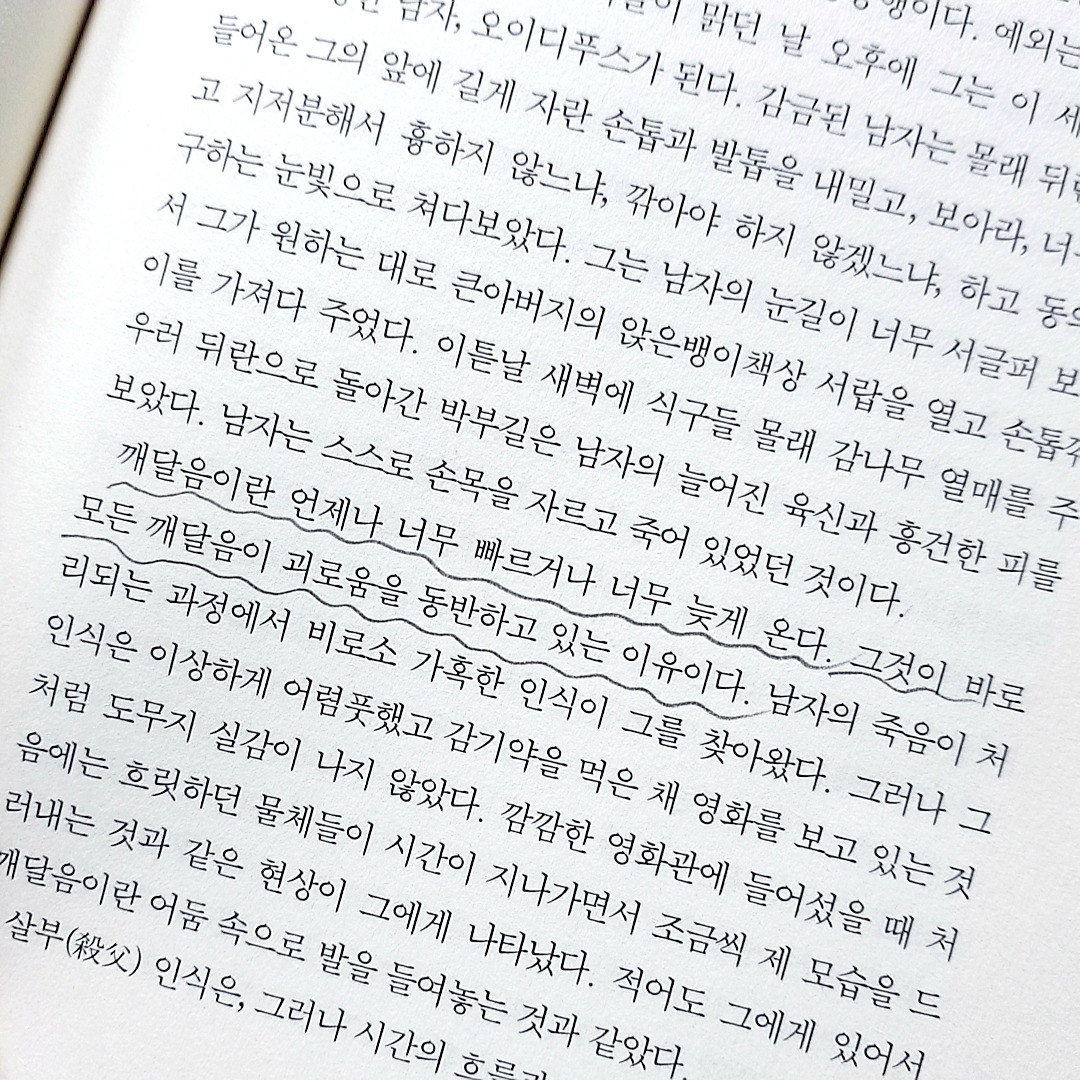 맑던 날 오후에 그는 이 세
남자, 오이디푸스가 된다. 감금된 남자는 몰래 뒤란
들어온 그의 앞에 길게 자란 손톱과 발톱을 내밀고, 보아라, 너
고 지저분해서 흉하지 않느냐, 깎아야 하지 않겠느냐, 하고 동
구하는 눈빛으로 쳐다보았다. 그는 남자의 눈길이 너무 서글퍼 보
서 그가 원하는 대로 큰아버지의 앉은뱅이책상 서랍을 열고 손톱깎
이를 가져다 주었다. 이튿날 새벽에 식구들 몰래 감나무 열매를 주
우러 뒤란으로 돌아간 박부길은 남자의 늘어진 육신과 흥건한 피를
보았다. 남자는 스스로 손목을 자르고 죽어 있었던 것이다.
깨달음이란 언제나 너무 빠르거나 너무 늦게 온다. 그것이 바로
모든 깨달음이 괴로움을 동반하고 있는 이유이다. 남자의 죽음이 처
리되는 과정에서 비로소 가혹한 인식이 그를 찾아왔다. 그러나 그
인식은 이상하게 어렴풋했고 감기약을 먹은 채 영화를 보고 있는 것
처럼 도무지 실감이 나지 않았다. 깜깜한 영화관에 들어섰을 때 처
음에는 흐릿하던 물체들이 시간이 지나가면서 조금씩 제 모습을 드
러내는 것과 같은 현상이 그에게 나타났다. 적어도 그에게 있어서
깨달음이란 어둠 속으로 발을 들여놓는 것과 같았다.
살부(殺父) 인식은, 그러나 시간의 흐름과